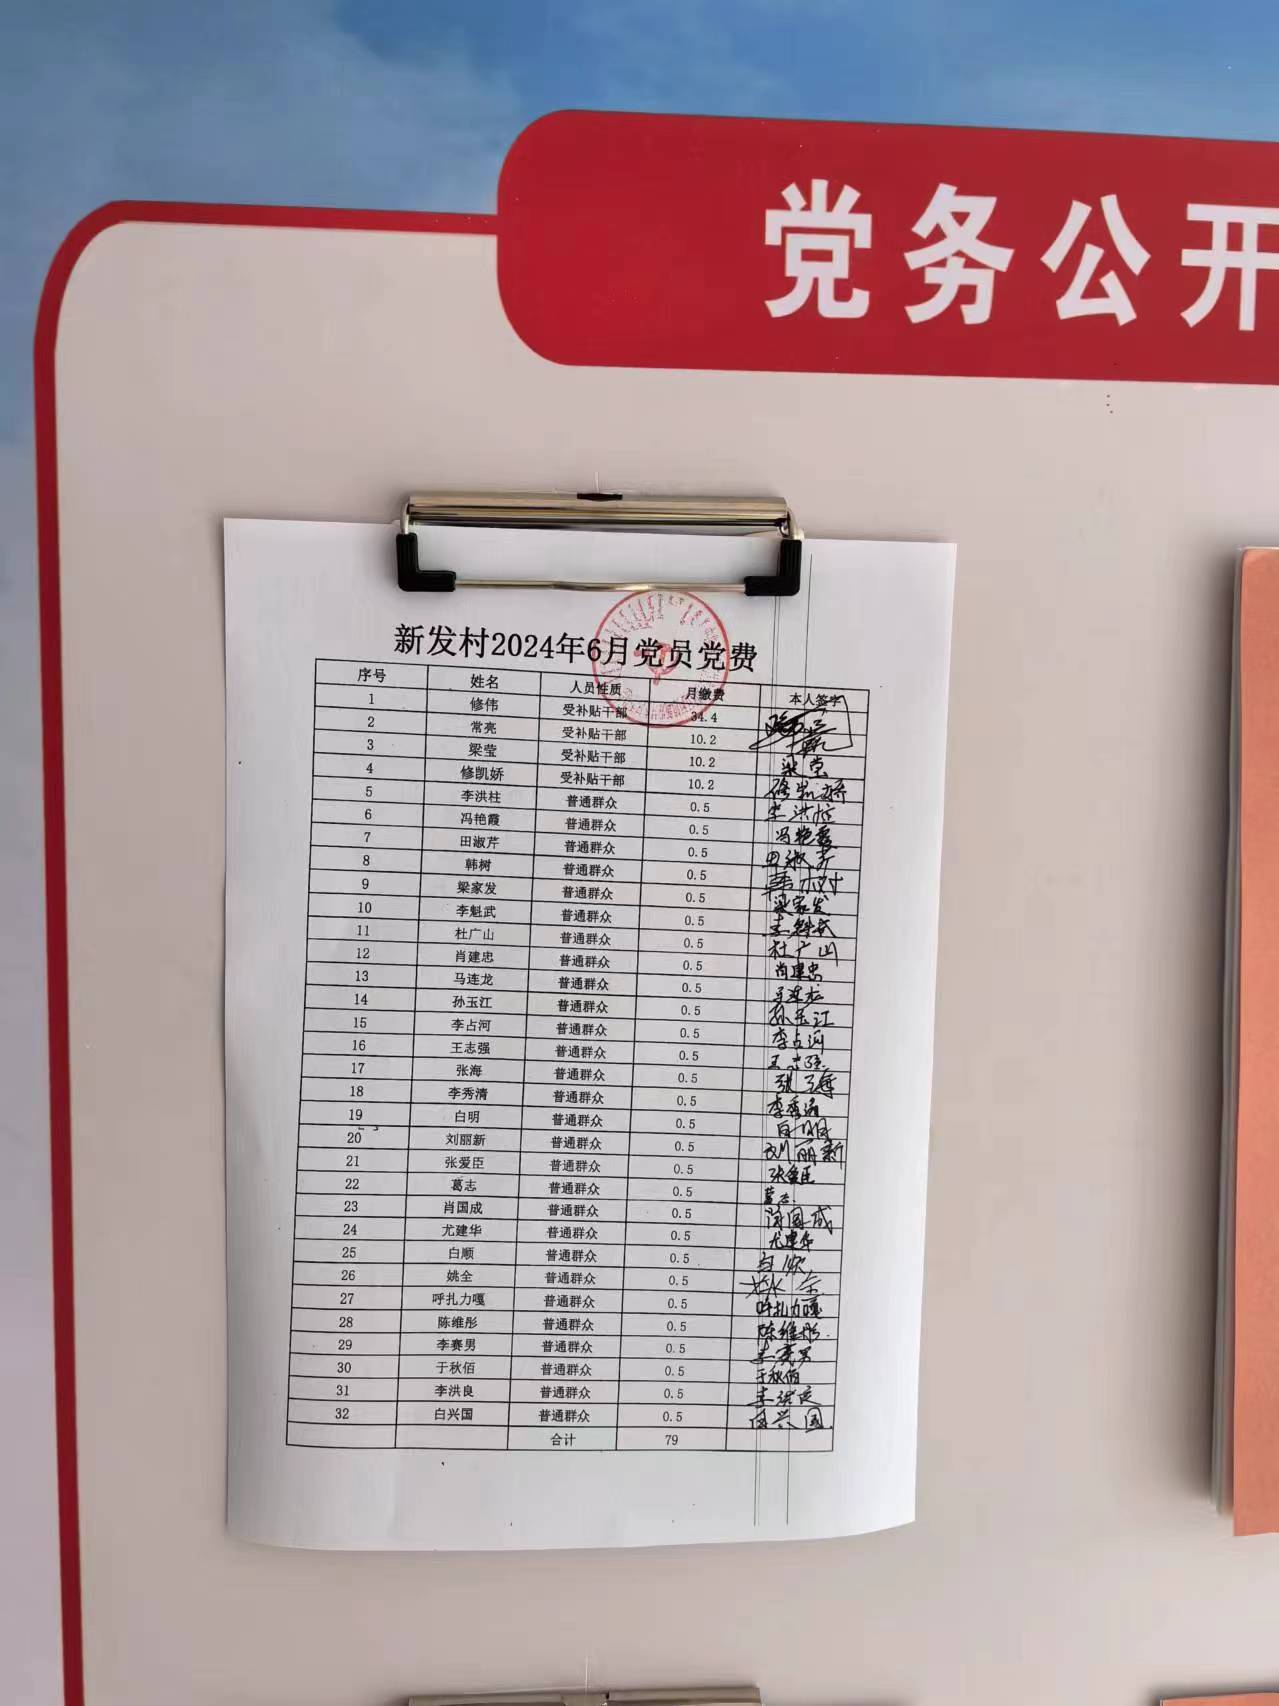 党务公开
新发村2024年6月党员党费
序号 姓名 人员性质 月缴费 本人签字
1 修伟 受补贴干部 34.4
2 常亮 受补贴干部 10.2
3 梁莹 受补贴干部 10.2 梁莹
4 修凯娇 受补贴干部 10.2 修凯娇
5 李洪柱 普通群众 0.5 李洪柱
6 冯艳霞 普通群众 0.5 冯艳霞
7 田淑芹 普通群众 0.5 田淑芹
8 韩树 普通群众 0.5 韩树
9 梁家发 普通群众 0.5 梁家发
10 李魁武 普通群众 0.5 李魁武
11 杜广山 普通群众 0.5 杜广山
12 肖建忠 普通群众 0.5 肖建忠
13 马连龙 普通群众 0.5 马连龙
14 孙玉江 普通群众 0.5 孙玉江
15 李占河 普通群众 0.5 李占河
16 王志强 普通群众 0.5 王志强
17 张海 普通群众 0.5 张海
18 李秀清 普通群众 0.5 李秀清
19 白明 普通群众 0.5 白明
20 刘丽新 普通群众 0.5 刘丽新
21 张爱臣 普通群众 0.5 张爱臣
22 葛志 普通群众 0.5 葛志
23 肖国成 普通群众 0.5 肖国成
24 尤建华 普通群众 0.5 尤建华
25 白顺 普通群众 0.5 白顺
26 姚全 普通群众 0.5 姚全
27 呼扎力嘎 普通群众 0.5 呼扎力嘎
28 陈维彤 普通群众 0.5 陈维彤
29 李赛男 普通群众 0.5 李赛男
30 于秋佰 普通群众 0.5 于秋佰
31 李洪良 普通群众 0.5 李洪良
32 白兴国 普通群众 0.5 白兴国
合计 79